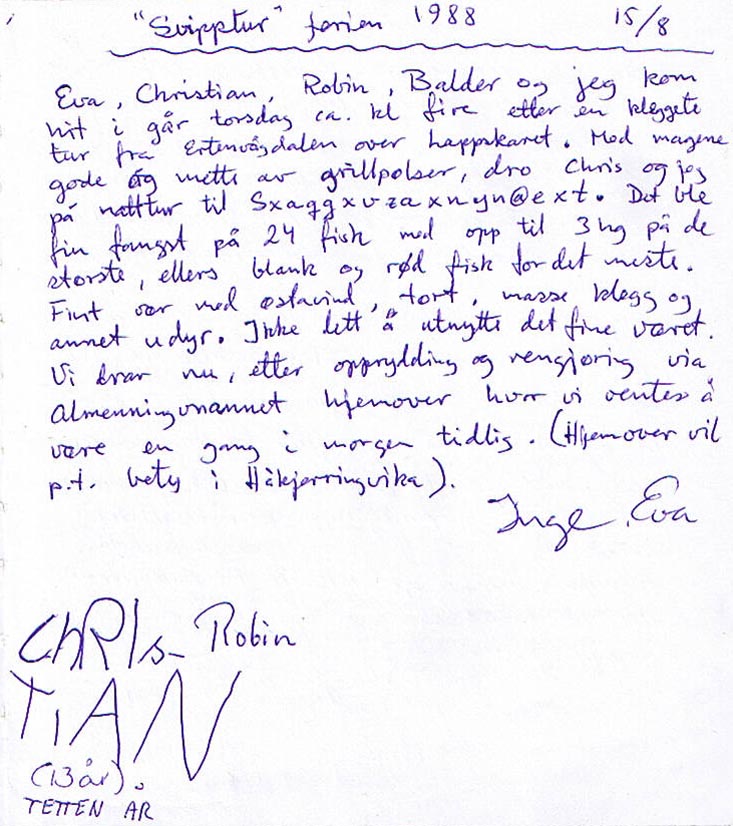 "Svipptur" ferien 1988 15/8
Eva, Christian, Robin, Balder og jeg kom
hit i går torsdag ca. kl fire etter en kleggete
tur fra Ertenvågdalen over happskaret. Med magene
gode og mette av grillpølser, dro Chris og jeg
på nattur til Sxaqgxvzaxnyn@ext. Det ble
fin fangst på 24 fisk med opp til 3 hg på de
største, ellers blank og rød fisk for det meste.
Fint vær med østavind, tørt, masse klegg og
annet udyr. Ikke lett å utnytte det fine været.
Vi drar nu, etter opprydding og rengjøring via
Almenningsvannet hjemover hvor vi ventes å
være en gang i morgen tidlig. (Hjemover vil
p.t. bety i Håkjerringvika).
Inge, Eva
ChRIs- Robin
TiAN
(13 år).
TETTEN AR